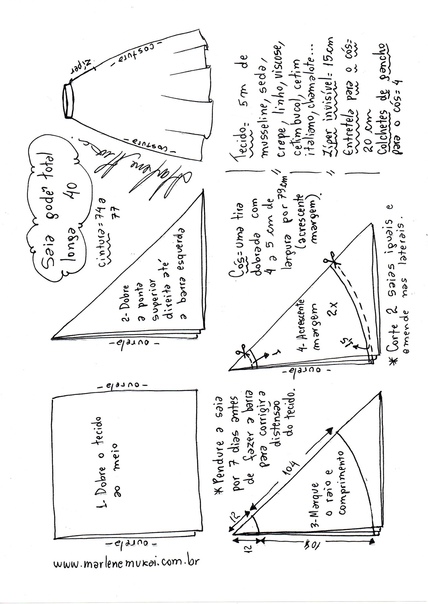 Saia godê total
longa 40
cintura: 74 a
77
zíper
- costura -
- costura -
Tecido= 5m de
musseline, seda,
crepe, linho, viscose,
cetim bucol, cetim
italiano, chamalote...
Zíper invisível= 15cm
Entretela para o cós=
20 cm
Colchetes de gancho
para o cós= 4
- ourela -
- ourela -
1- Dobre o tecido
ao meio
- ourela -
2- Dobre
a ponta
superior
direita até
a barra esquerda
*Pendure a saia
por 7 dias antes
de fazer a barra
para corrigir a
distensão
do tecido.
12
104
12
104
3-Marque
o raio e
comprimento
Cós=uma tira
dobrada com
4 a 5 cm de
largura por 79cm
(acrescente
margem)
- ourela -
4- Acrescente
margem
2x
1
1,5
* Corte 2 saias iguais e
emende nas laterais.
www.marlenemukai.com.br